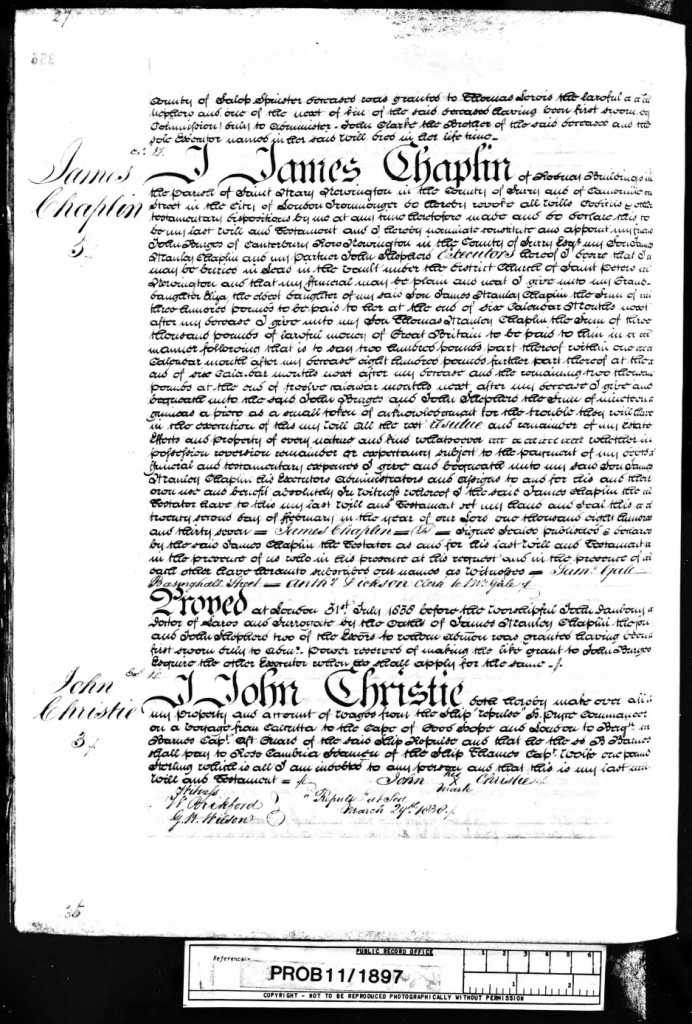 27
County of Salop Spinster deceased was granted to Thomas the lawful
nephew and one of the next of kin of the said deceased having been first sworn by
Commission duly to Administer. John Clarke the Brother of the said deceased and the
sole Executor named in her said Will died in her life time
James
Chaplin
3
I James Chaplin of Buildings in
the Parish of Saint Mary Newington in the County of Surry and of
Street in the City of London Ironmonger do hereby revoke all Wills Codicils & other
testamentary dispositions by me at any time heretofore made and do declare this to
be my last Will and Testament and I hereby nominate constitute and appoint my friend
John Burges of Canterbury Row Newington in the County of Surry Esqre my Son James
Stanley Chaplin and my partner John Shepherd Executors hereof I desire that I
may be buried in Lead in the vault under the district Church of Saint Peters in
Newington and that my funeral may be plain and neat I give unto my Grand
daughter Eliza the eldest daughter of my said Son James Stanley Chaplin the Sum of
three hundred pounds to be paid to her at the end of six Calendar Months next
after my decease I give unto my Son Thomas Stanley Chaplin the Sum of three
thousand pounds of lawful money of Great Britain to be paid to him in
manner following that is to say two hundred pounds part thereof within one
Calendar month after my decease eight hundred pounds further part thereof at the
end of six Calendar months next after my decease and the remaining two thousand
pounds at the end of twelve calendar months next after my decease I give and
bequeath unto the said John Burges and John Shepherd the Sum of nineteen
guineas a piece as a small token of acknowledgment for the trouble they will have
in the execution of this my Will All the rest residue and remainder of my Estate
Effects and property of every nature and kind whatsoever whether in
possession reversion remainder or expectancy subject to the payment of my debts
funeral and testamentary expences I give and bequeath unto my said Son James
Stanley Chaplin his Executors Administrators and Assigns to and for his and their
own use and benefit absolutely In Witness whereof I the said James Chaplin the
Testator have to this my last Will and Testament set my hand and Seal this
twenty second day of February in the year of our Lord one thousand eight hundred
and thirty seven = James Chaplin = (LS) = Signed Sealed published & declared
by the said James Chaplin the Testator as and for his last Will and Testament
in the presence of us who in his presence at his request and in the presence of
each other have hereunto subscribed our names as Witnesses = Gale
Basinghall Street = Anthy Dickson Clerk to Mr Gale
Proved at London 31st July 1838 before the Worshipful John Daubeny
Doctor of Laws and Surrogate by the Oaths of James Stanley Chaplin the son
and John Shepherd two of the Exors to whom Admon was granted having been
first sworn duly to Admr. Power reserved of making the like grant to John Burges
Esquire the other Executor when he shall apply for the same
John
Christie
3
I John Christie doth hereby make over all
my property and account of wages from the Ship "Repulse" H. Pryce Commander
on a voyage from Calcutta to the Cape of Good Hope and London to
Barnes Capt. Aft Guard of the said Ship Repulse and that he the sd Barnes
shall pay to Cambria Seamen of the Ship Thames Capt. one pound
Sterling which is all I am indebted to any person and that this is my last
Will and Testament = John his X mark Christie
Witness
G. W. Wilson
"Repulse" at Sea
March 29th 1838
35
PUBLIC RECORD OFFICE
Reference:-
PROB 11/1897
COPYRIGHT - NOT TO BE REPRODUCED PHOTOGRAPHICALLY WITHOUT PERMISSION
1
2
3
4
5
6
1
2